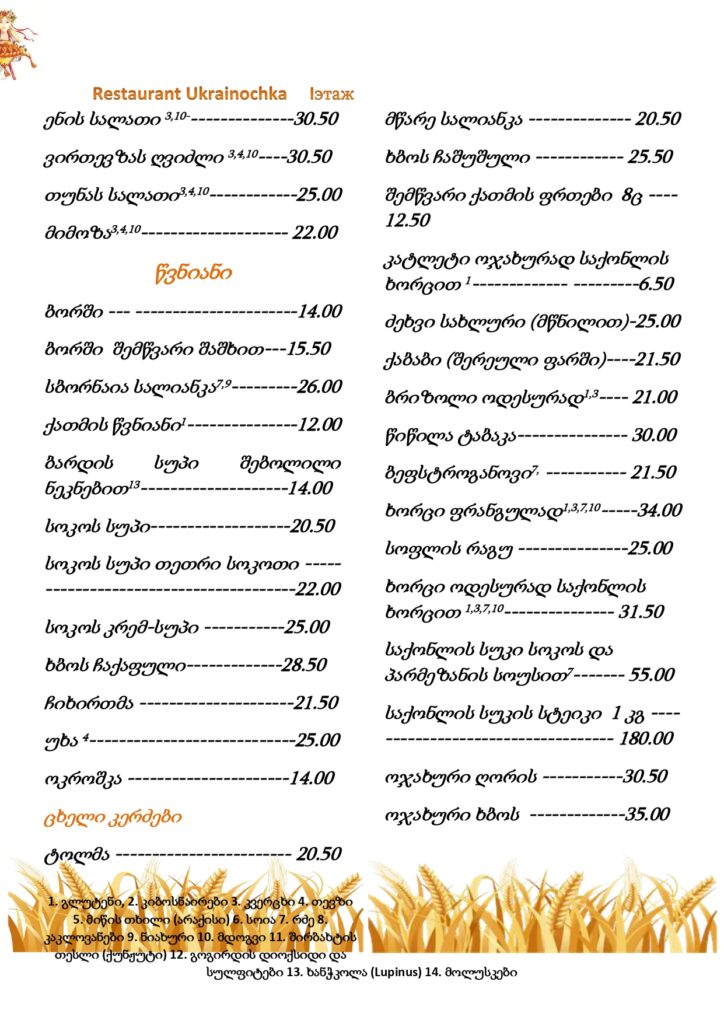 Restaurant Ukrainochka Iэтаж
ენის სალათი 3,10----------------30.50
ვირთევზას ღვიძლი 3,4,10----30.50
თუნას სალათი3,4,10------------25.00
მიმოზა3,4,10-------------------- 22.00
წვნიანი
ბორში --- ----------------------14.00
ბორში შემწვარი შაშხით---15.50
სბორნაია სალიანკა7,9---------26.00
ქათმის წვნიანი1---------------12.00
ბარდის სუპი შებოლილი
ნეკნებით13--------------------14.00
სოკოს სუპი-------------------20.50
სოკოს სუპი თეთრი სოკოთი -----
----------------------------------22.00
სოკოს კრემ-სუპი -----------25.00
ხბოს ჩაქაფული-------------28.50
ჩიხირთმა ---------------------21.50
უხა 4----------------------------25.00
ოკროშკა ----------------------14.00
ცხელი კერძები
ტოლმა ------------------------ 20.50
მწარე სალიანკა -------------- 20.50
ხბოს ჩაშუშული ------------ 25.50
შემწვარი ქათმის ფრთები 8ც ----
12.50
კატლეტი ოჯახურად საქონლის
ხორცით 1------------- ---------6.50
ძეხვი სახლური (მწნილით)-25.00
ქაბაბი (შერეული ფარში)----21.50
ბრიზოლი ოდესურად1,3---- 21.00
წიწილა ტაბაკა--------------- 30.00
ბეფსტროგანოვი7, ----------- 21.50
ხორცი ფრანგულად1,3,7,10-----34.00
სოფლის რაგუ ---------------25.00
ხორცი ოდესურად საქონლის
ხორცით 1,3,7,10--------------- 31.50
საქონლის სუკი სოკოს და
პარმეზანის სოუსით7------- 55.00
საქონლის სუკის სტეიკი 1 კგ ----
------------------------------- 180.00
ოჯახური ღორის -----------30.50
ოჯახური ხბოს -------------35.00
1. გლუტენი, 2. კიბოსნაირები 3. კვერცხი 4. თევზი
5. მიწის თხილი (არაქისი) 6. სოია 7. რძე 8.
კაკლოვანები 9. ნიახური 10. მდოგვი 11. შირბახტის
თესლი (ქუნჟუტი) 12. გოგირდის დიოქსიდი და
სულფიტები 13. ხანჭკოლა (Lupinus) 14. მოლუსკები